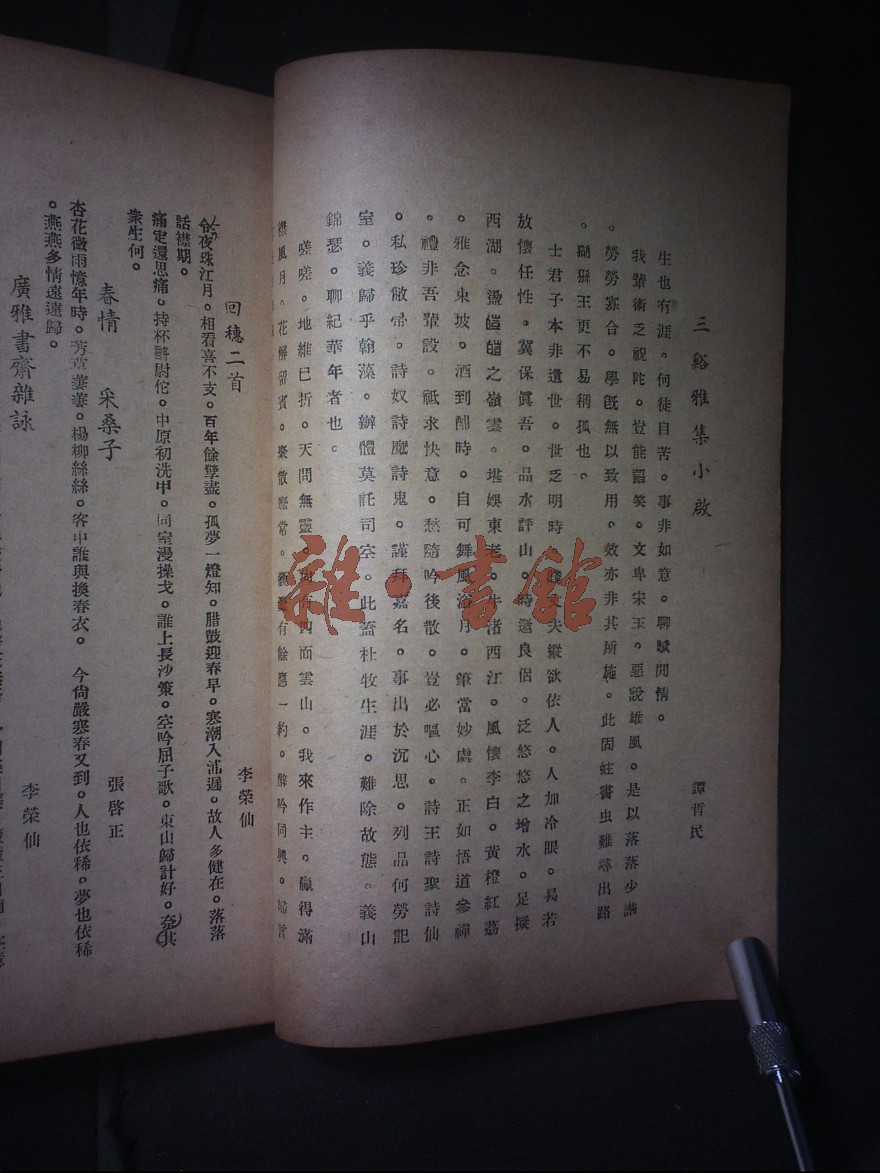 三谿雅集小啟
譚哲民
生也有涯。何徒自苦。事非如意。聊賦閒情。
我輩術乏祝鮀。豈能謟笑。文卑宋玉。惡說雄風。是以落落少諧
。勞勞寡合。學旣無以致用。效亦非其所施。此固蛀書虫難尋出路
。猢猻王更不易稱孤也。
士君子本非遺世。世乏明時。夫縱欲依人。人加冷眼。曷若
放懷任性。冀保眞吾。品水評山。時邀良侶。泛悠悠之增水。足擬
西湖。溤皚皚之嶺雲。堪娛東老。牛渚西江。風懷李白。黃橙紅荔
。雅念東坡。酒到酣時。自可舞風浴月。筆當妙處。正如悟道參禪
。禮非吾輩設。祇求快意。愁隨吟後散。豈必嘔心。詩王詩聖詩仙
。私珍敝帚。詩奴詩魔詩鬼。謹拜嘉名。事出於沉思。列品何勞記
室。義歸乎翰藻。辦體莫託司空。此蓋杜牧生涯。難除故態。義山
錦瑟。聊紀華年者也。
嗟嗟。地維已折。天問無靈。四面雲山。我來作主。贏得滿
襟風月。花解留賓。聚散尋常。有餘應一約。醉吟同興。
雜·書館
回穗二首
李榮仙
今夜珠江月。相看喜不支。百年餘孽盡。孤夢一燈知。腊鼓迎春早。寒潮入浦遲。故人多健在。落落
話襟期。
痛定還思痛。持杯酹尉佗。中原初洗甲。同室漫操戈。誰上長沙策。空吟屈子歌。東山歸計好。奈其
衆生何。
春情 采桑子
張啓正
杏花微雨憶年時。芳草萋萋。楊柳絲絲。客中誰與換春衣。 今尙嚴寒春又到。人也依稀。夢也依稀
。燕燕多情遠遠歸。
廣雅書齋雜詠
李榮仙